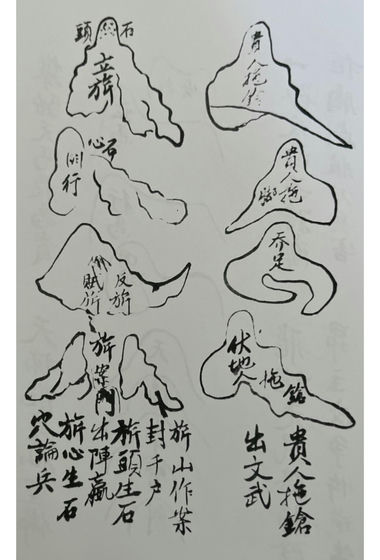 貴人拖鈴
貴人拖
伏地人
拖鎗
貴人拖鎗
出文武
石
頭
立旂
石
心
行
反旂
賊旂
旂山作案
封千户
旂頭生石
旂案門出陣贏
旂心生石
論兵